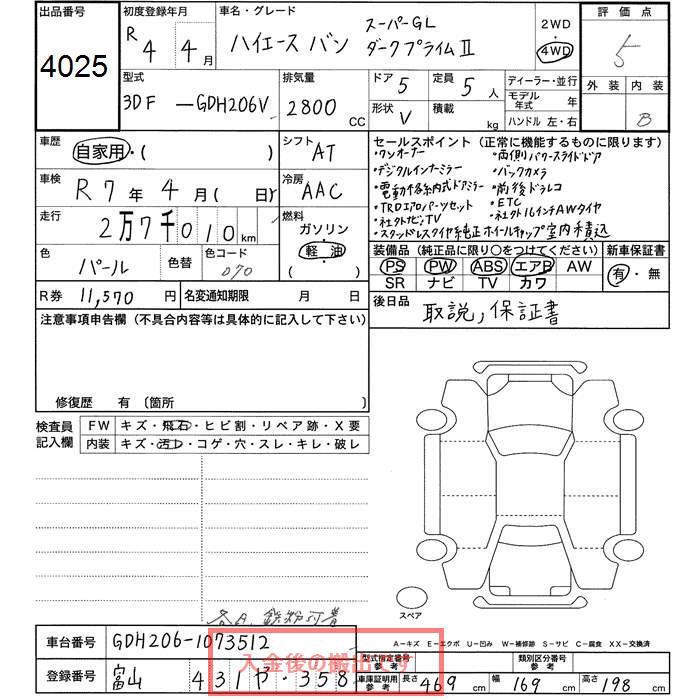 出品番号
4025
初度登録年月
R 4年 4月
車名・グレード
ハイエース バン スーパーGL
ダークプライムⅡ
2WD
4WD
評価点
5
外装 内装
B
型式
3DF -GDH206V
排気量
2800 CC
ドア 5
形状 V
定員 5人
積載 kg
ディーラー・並行
モデル年式 年
ハンドル 左・右
車歴
自家用・( )
シフト
AT
車検
R 7年 4月( 日)
冷房
AAC
走行
2万7千010 km
燃料
ガソリン
軽油
( )
色
パール
色替
色コード
070
R券 11,570 円
名変通知期限 月 日
セールスポイント (正常に機能するものに限ります)
・ワンオーナー ・両側パワースライドドア
・デジタルインナーミラー ・バックカメラ
・電動格納式ドアミラー ・前後ドラレコ
・TRDエアロパーツセット ・ETC
・社外ナビ、TV ・社外16インチAWタイヤ
・スタッドレスタイヤ純正ホイールキャップ室内積込
装備品 (純正品に限り○をつけてください)
PS PW ABS エアB AW
SR ナビ TV カワ
新車保証書
有・無
後日品
取説, 保証書
注意事項申告欄 (不具合内容等は具体的に記入して下さい)
修復歴 有 〔箇所
検査員記入欄
FW キズ・飛石・ヒビ割・リペア跡・X要
内装 キズ・汚レ・コゲ・穴・スレ・キレ・破レ
鉄粉可着
スペア
車台番号 GDH206-1073512
登録番号 富山 431 や・358
入金後の搬出です
A-キズ E-エクボ U-凹み W-補修跡 S-サビ C-腐食 XX-交換済
型式指定番号 参考
類別区分番号 参考
車庫証明用 参考
長さ 469 cm 幅 169 cm 高さ 198 cm